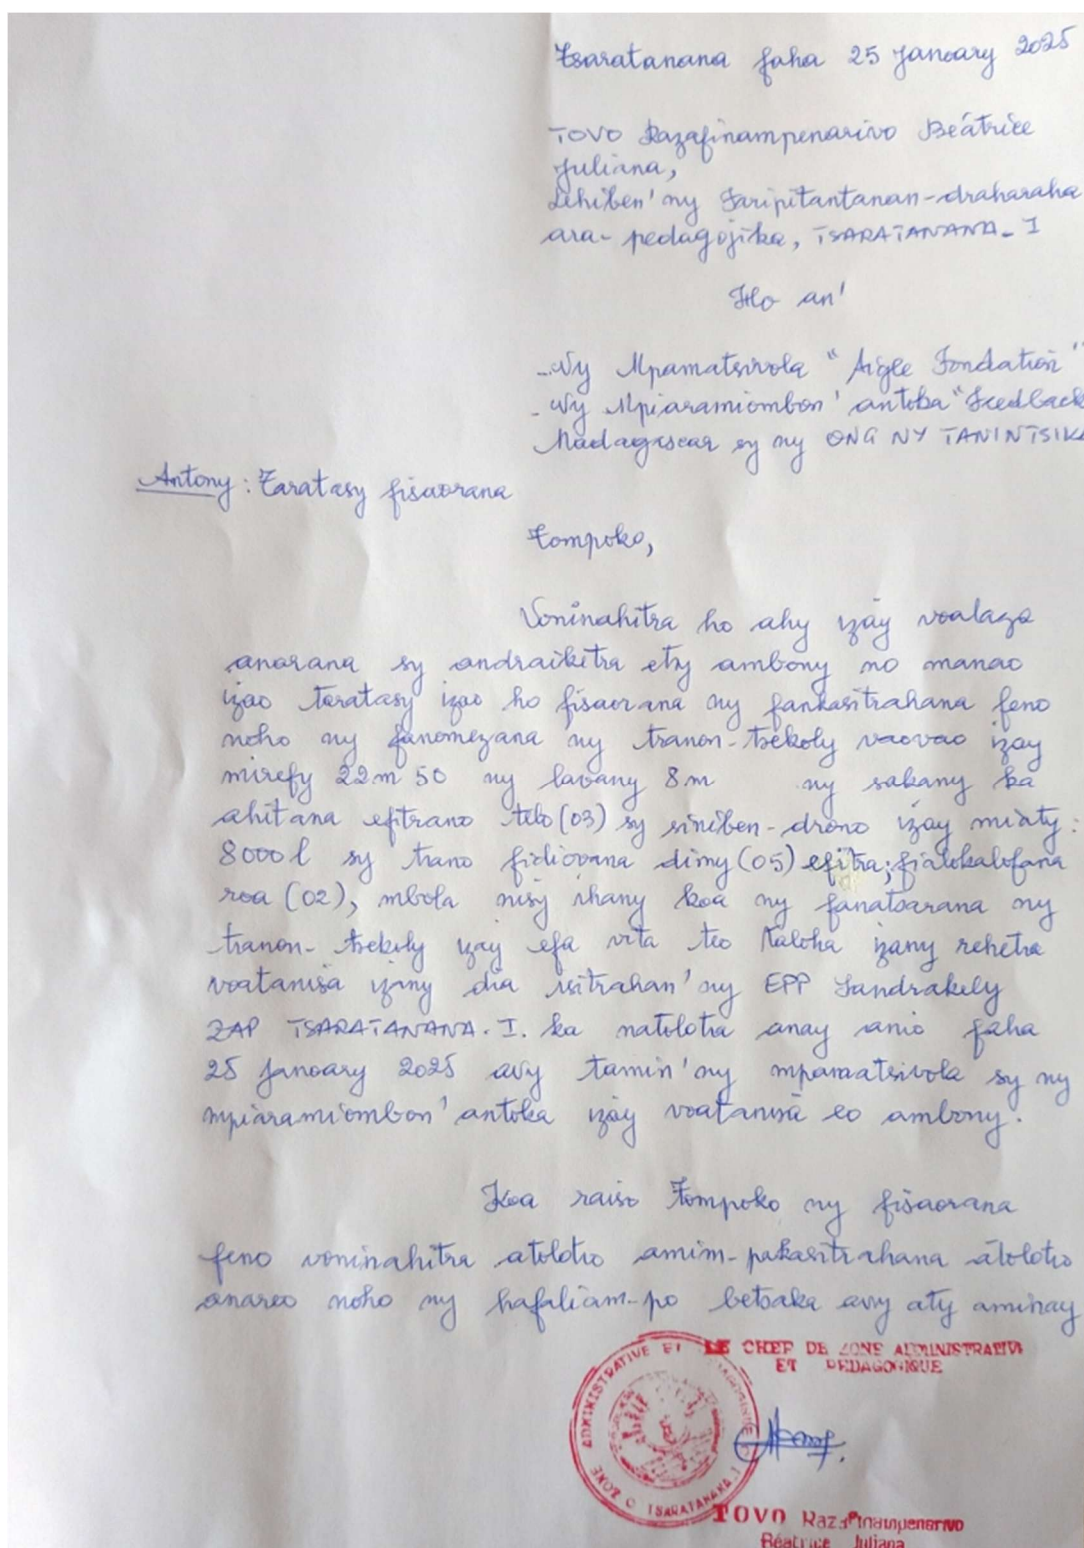 Tsaratanana faha 25 janoary 2025
TOVO Razafinampenarivo Béatrice
Juliana,
Lehiben'ny Faripitantanan-draharaha
ara-pedagojika, TSARATANANA-I
Ho an'
-Ny Mpamatsivola "Aigle Fondation"
-Ny Mpiaramiombon'antoka "Feedback
Madagascar sy ny ONG NY TANINTSIKA
Antony: Taratasy fisaorana
Tompoko,
Voninahitra ho ahy izay voalaza
anarana sy andraikitra etsy ambony no manao
izao taratasy izao ho fisaorana ny fankasitrahana feno
noho ny fanomezana ny tranon-tsekoly vaovao izay
mirefy 22m 50 ny lavany 8m ny sakany ka
ahitana efitrano telo (03) sy siniben-drano izay miaty:
8000l sy trano fidiovana dimy (05) efitra; fialokalofana
roa (02), mbola nisy ihany koa ny fanatsarana ny
tranon-tsekoly izay efa vita teo taloha izany rehetra
voatanisa izany dia isitrahan'ny EPP Landrakely
ZAP TSARATANANA.I. ka natolotra anay anio faha
25 janoary 2025 avy tamin'ny mpamatsivola sy ny
mpiaramiombon'antoka izay voatanisa eo ambony.
Koa raiso Tompoko ny fisaorana
feno voninahitra atolotro amim-pakasitrahana atolotro
anareo noho ny hafaliam-po betsaka avy aty aminay
LE CHEF DE ZONE ADMINISTRATIVE
ET PEDAGOGIQUE
ZONE ADMINISTRATIVE ET PEDAGOGIQUE TSARATANANA I
TOVO Razafinampenarivo
Béatrice Juliana